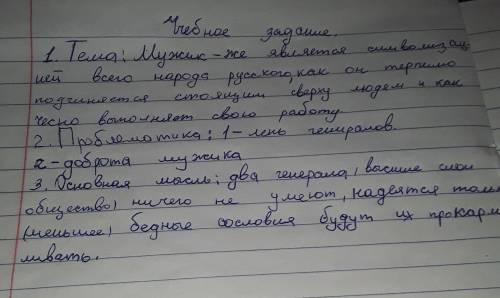 Учебное задание.
1. Тема: Мужик-же является символизац
ией всего народа русского, как он терпимо
подчиняется стоящим сверху людем и как
чесно выполняет свою работу
2. Проблематика: 1- лень генералов.
2- доброта мужика
3. Основная мысль: два генерала, (высшие слои
общество) ничего не умеют, надеятся толи
(меньшее) бедные сословия будут их прокарм
ливать.